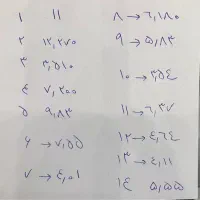 ١ ١١
٢ ١٢,٢٧٠
٣ ٣,٥١٠
٤ ٧,٢٠٠
٥ ٩,٨٣
٦ → ٧,٥٥
٧ → ٤,٠١
٨ → ٦,١٨٠
٩ → ٥,٨٣
١٠ → ٣,٥٤
١١ → ٦,٣٧
١٢ → ٤,٦٤
١٣ → ٤,١١
١٤ ٥,٥٥